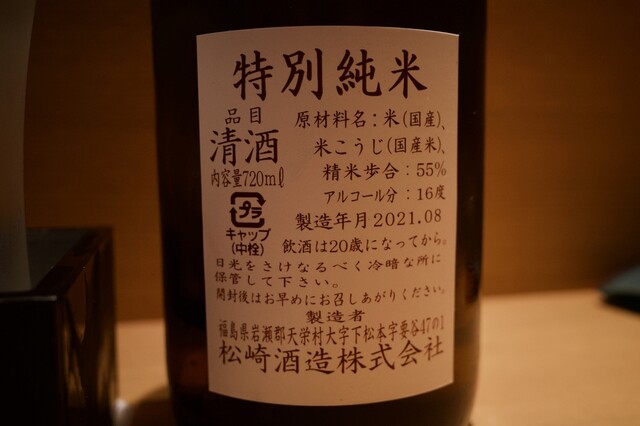 特別純米
品目
清酒
内容量720mℓ
プラ
キャップ
(中栓)
原材料名：米(国産)、
米こうじ(国産米)、
精米歩合：55%
アルコール分：16度
製造年月2021.08
飲酒は20歳になってから。
日光をさけなるべく冷暗な所に
保管して下さい。
開封後はお早めにお召しあがりください。
製造者
福島県岩瀬郡天栄村大字下松本字要谷47の1
松崎酒造株式会社